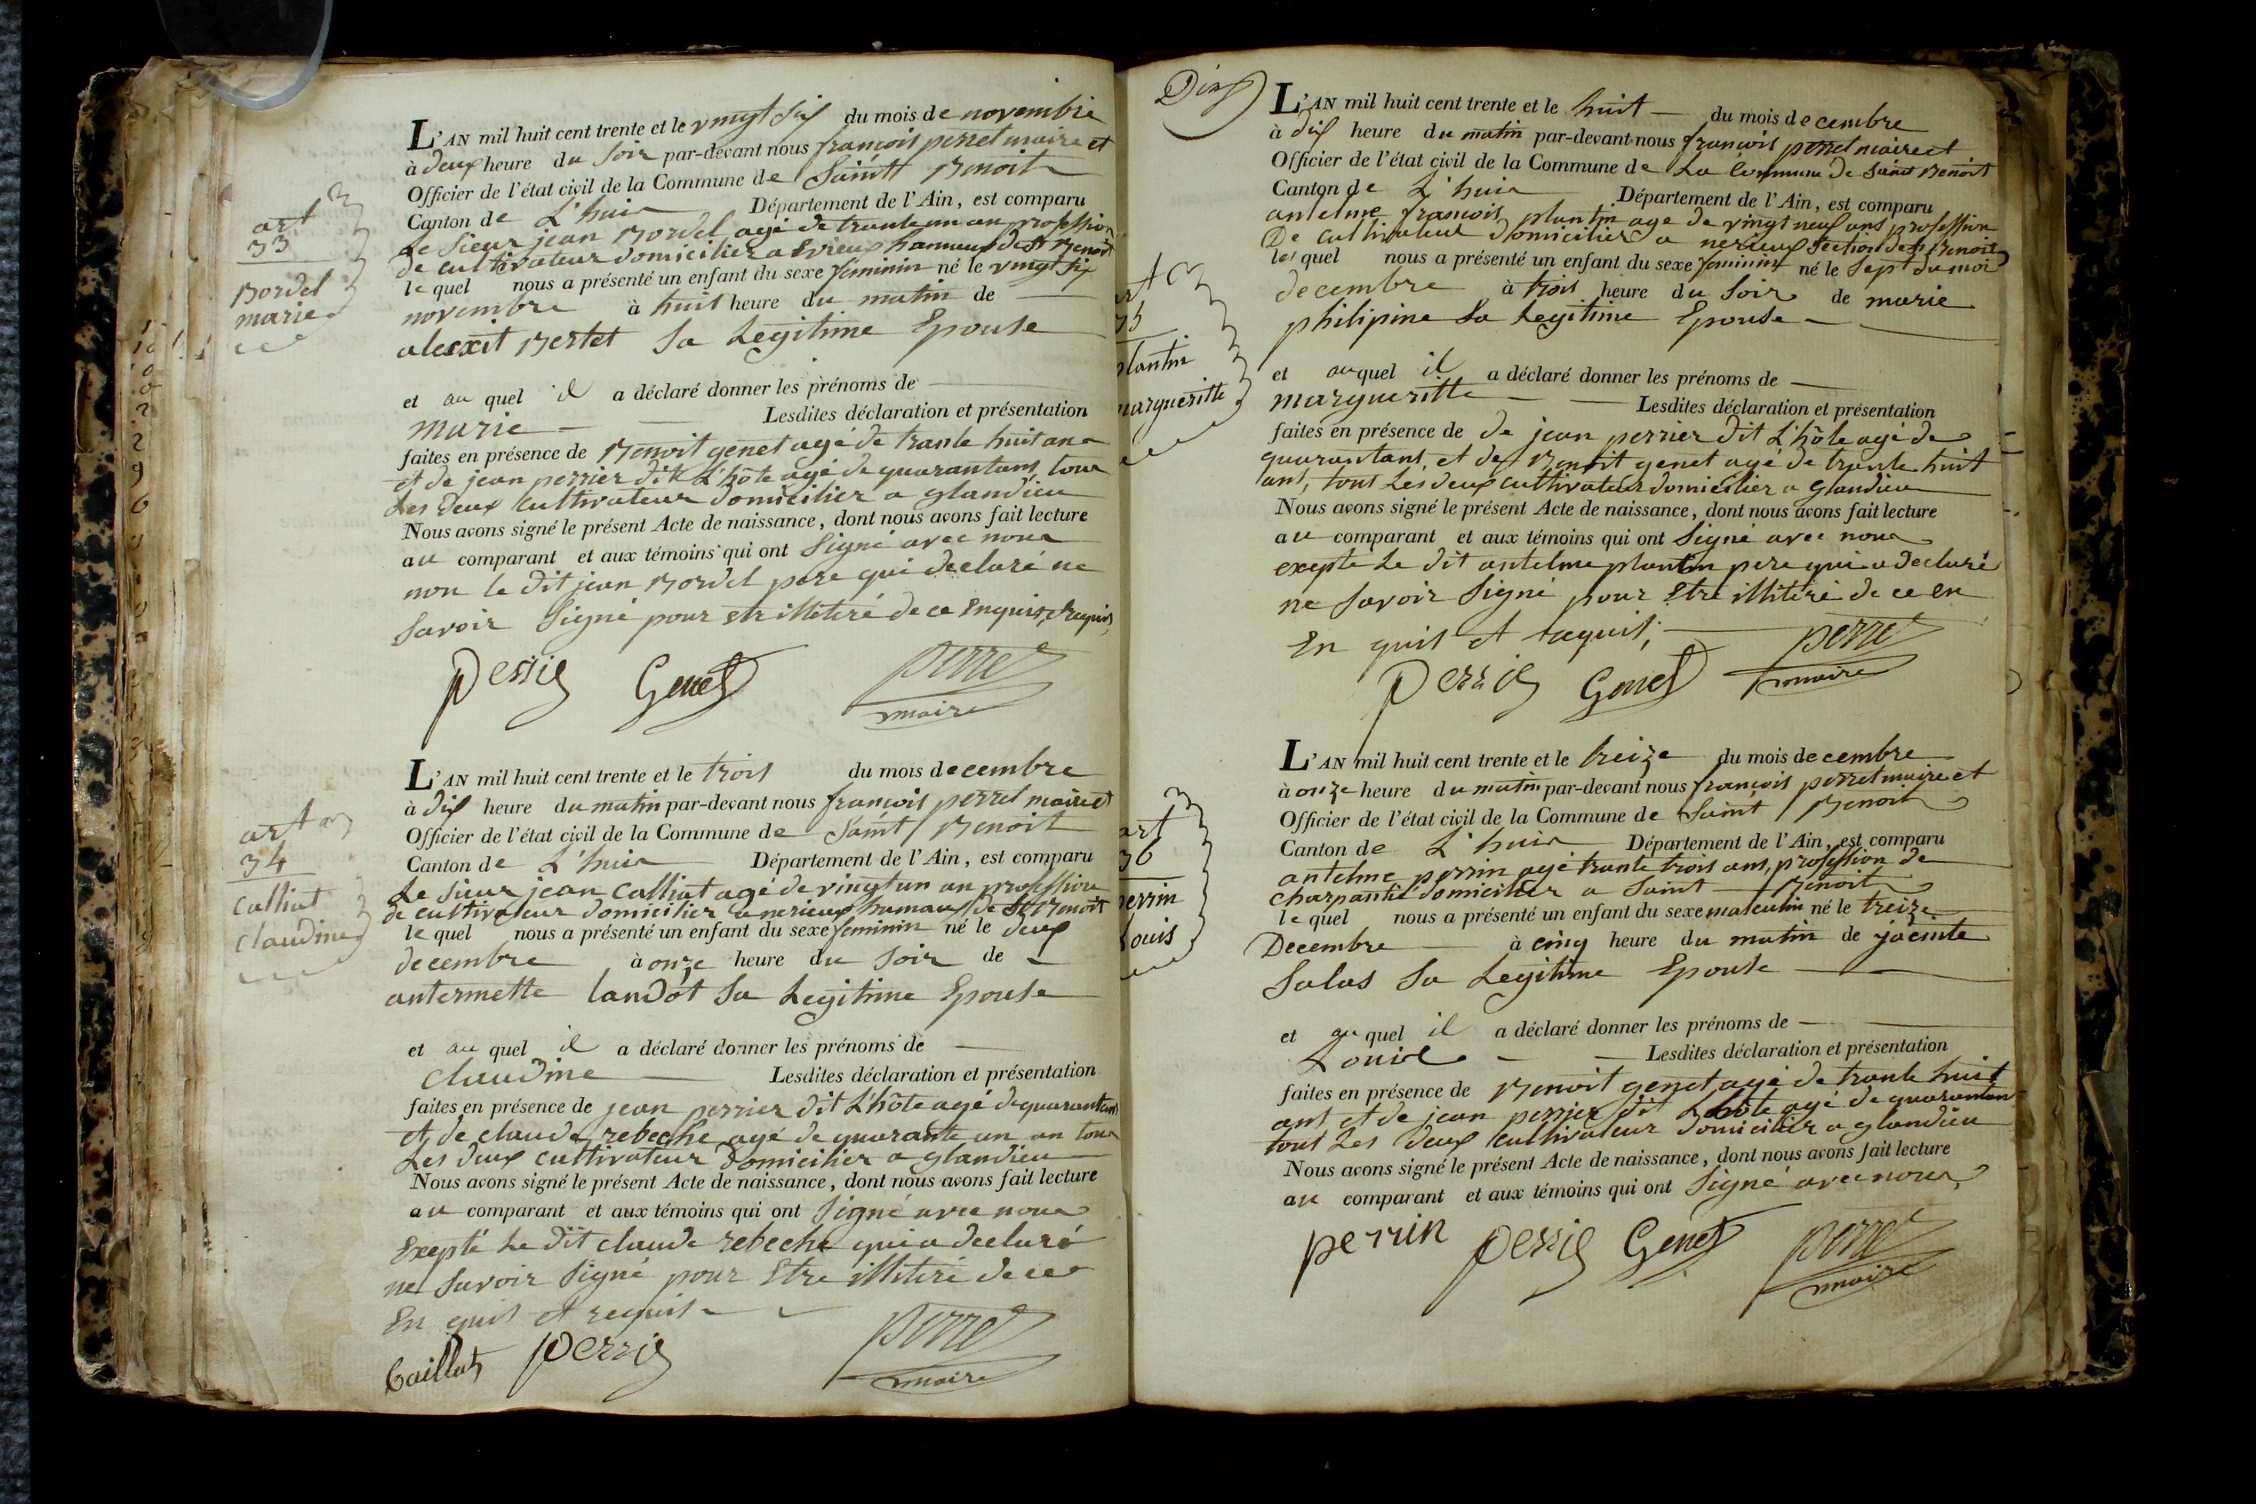 art
33
Bordel
marie
L'AN mil huit cent trente et le vingt six du mois de novembre
à deux heure du soir par-devant nous françois perret maire et
Officier de l'état civil de la Commune de Saint Benoit
Canton de L'huis Département de l'Ain, est comparu
Le sieur jean Bordel agé de trante un an profession
de cultivateur domicilier a Evieux hameux de St Benoit
lequel nous a présenté un enfant du sexe feminin né le vingt six
novembre à huit heure du matin de
alexit Bertet Sa Legitime Epouse
et au quel il a déclaré donner les prénoms de
marie Lesdites déclaration et présentation
faites en présence de Benoit genet agé de trante huit ans
et de jean perrier dit L'hôte agé de quarantans tous
Les deux cultivateur domicilier a glandieu
Nous avons signé le présent Acte de naissance, dont nous avons fait lecture
au comparant et aux témoins qui ont Signé avec nous
non le dit jean Bordel pere qui declaré ne
Savoir Signé pour etr illitéré de ce Enquis, et requis,
perrie Genet perret
maire
art
34
Calliut
claudine
L'AN mil huit cent trente et le trois du mois decembre
à dix heure du matin par-devant nous françois perret maire et
Officier de l'état civil de la Commune de Saint Benoit
Canton de L'huis Département de l'Ain, est comparu
Le sieur jean Calliut agé de vingt un an profession
de cultivateur domicilier a nerieux hamaux de St Benoit
lequel nous a présenté un enfant du sexe feminin né le deux
decembre à onze heure du Soir de
antermette landot Sa Legitime Epouse
et au quel il a déclaré donner les prénoms de
claudine Lesdites déclaration et présentation
faites en présence de jean perrier dit L'hôte agé de quarantans
et de claude rebeche agé de quarante un an tous
Les deux cultivateur Domicilier a glandieu
Nous avons signé le présent Acte de naissance, dont nous avons fait lecture
au comparant et aux témoins qui ont Signé avec nous
Exepté Le dit claude rebeche qui a declaré
ne Savoir Signé pour Etre illitéré de ce
En quis et requis
Caillat perrie perret
maire
Dix
art
35
plantin
margueritte
L'AN mil huit cent trente et le huit du mois decembre
à dix heure du matin par-devant nous françois perret maire et
Officier de l'état civil de la Commune de La Commune de Saint Benoit
Canton de L'huis Département de l'Ain, est comparu
antelme françois plantin agé de vingt neuf ans profession
De cultivateur domicilier a nerieux Section de St Benoit
lequel nous a présenté un enfant du sexe feminin né le Sept du moi
decembre à trois heure du Soir de marie
philipine Sa Legitime Epouse
et auquel il a déclaré donner les prénoms de
margueritte Lesdites déclaration et présentation
faites en présence de de jean perrier dit L'hôte agé de
quarantans, et de Benoit genet agé de trante huit
ans, tout Les deux cultivateur domicilier a glandieu
Nous avons signé le présent Acte de naissance, dont nous avons fait lecture
au comparant et aux témoins qui ont Signé avec nous
exepte Le dit antelme plantin pere qui a declaré
ne Savoir Signé pour Etre illitéré de ce en
En quis et requis,
perrie Genet perret
maire
art
36
perrin
Louis
L'AN mil huit cent trente et le treize du mois decembre
à onze heure du matin par-devant nous françois perret maire et
Officier de l'état civil de la Commune de Saint Benoit
Canton de L'huis Département de l'Ain, est comparu
antelme perrin agé trante trois ans, profession de
charpantié domicilier a Saint Benoit
lequel nous a présenté un enfant du sexe masculin né le treize
Decembre à cinq heure du matin de jacinte
Salas Sa Legitime Epouse
et au quel il a déclaré donner les prénoms de
Louis Lesdites déclaration et présentation
faites en présence de Benoit genet agé de trante huit
ans et de jean perrier dit Lhôte agé de quarantans
tout Les deux cultivateur domicilier a glandieu
Nous avons signé le présent Acte de naissance, dont nous avons fait lecture
au comparant et aux témoins qui ont Signé avec nous,
perrin perrie Genet perret
maire